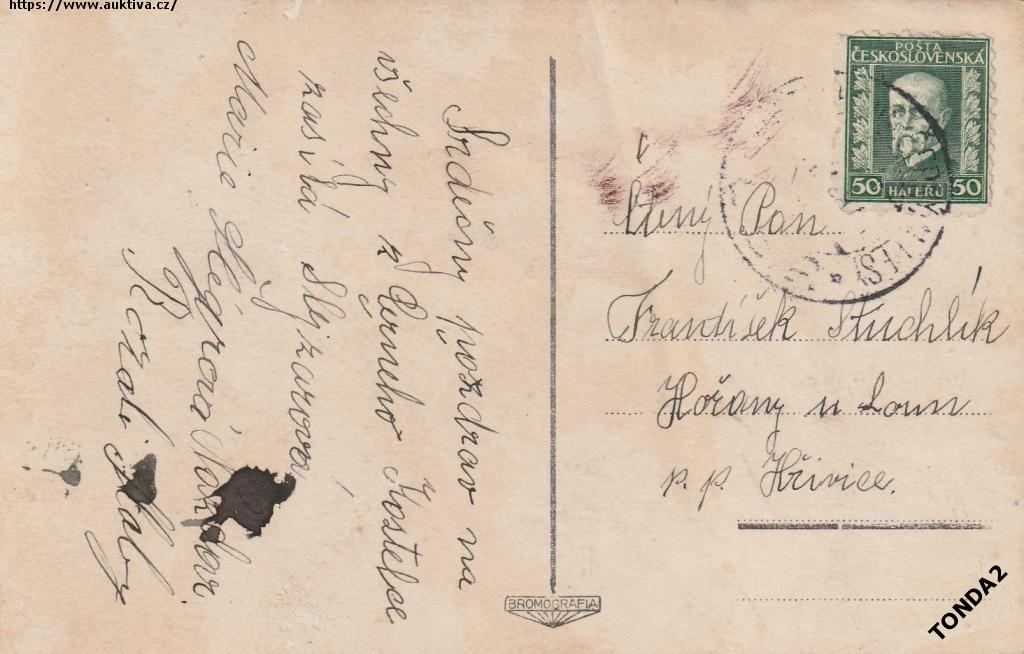 https://www.auktiva.cz/
Srdečný pozdrav na
všechny z Černého Kostelce
zasílá Slyzarová
Marie
Nazdar
POŠTA
ČESKOSLOVENSKÁ
50 HALÉŘŮ 50
Ctěný Pán
František Stuchlík
Hořany u Loun
p. p. Hřivice.
BROMOGRAFIA
TONDA2